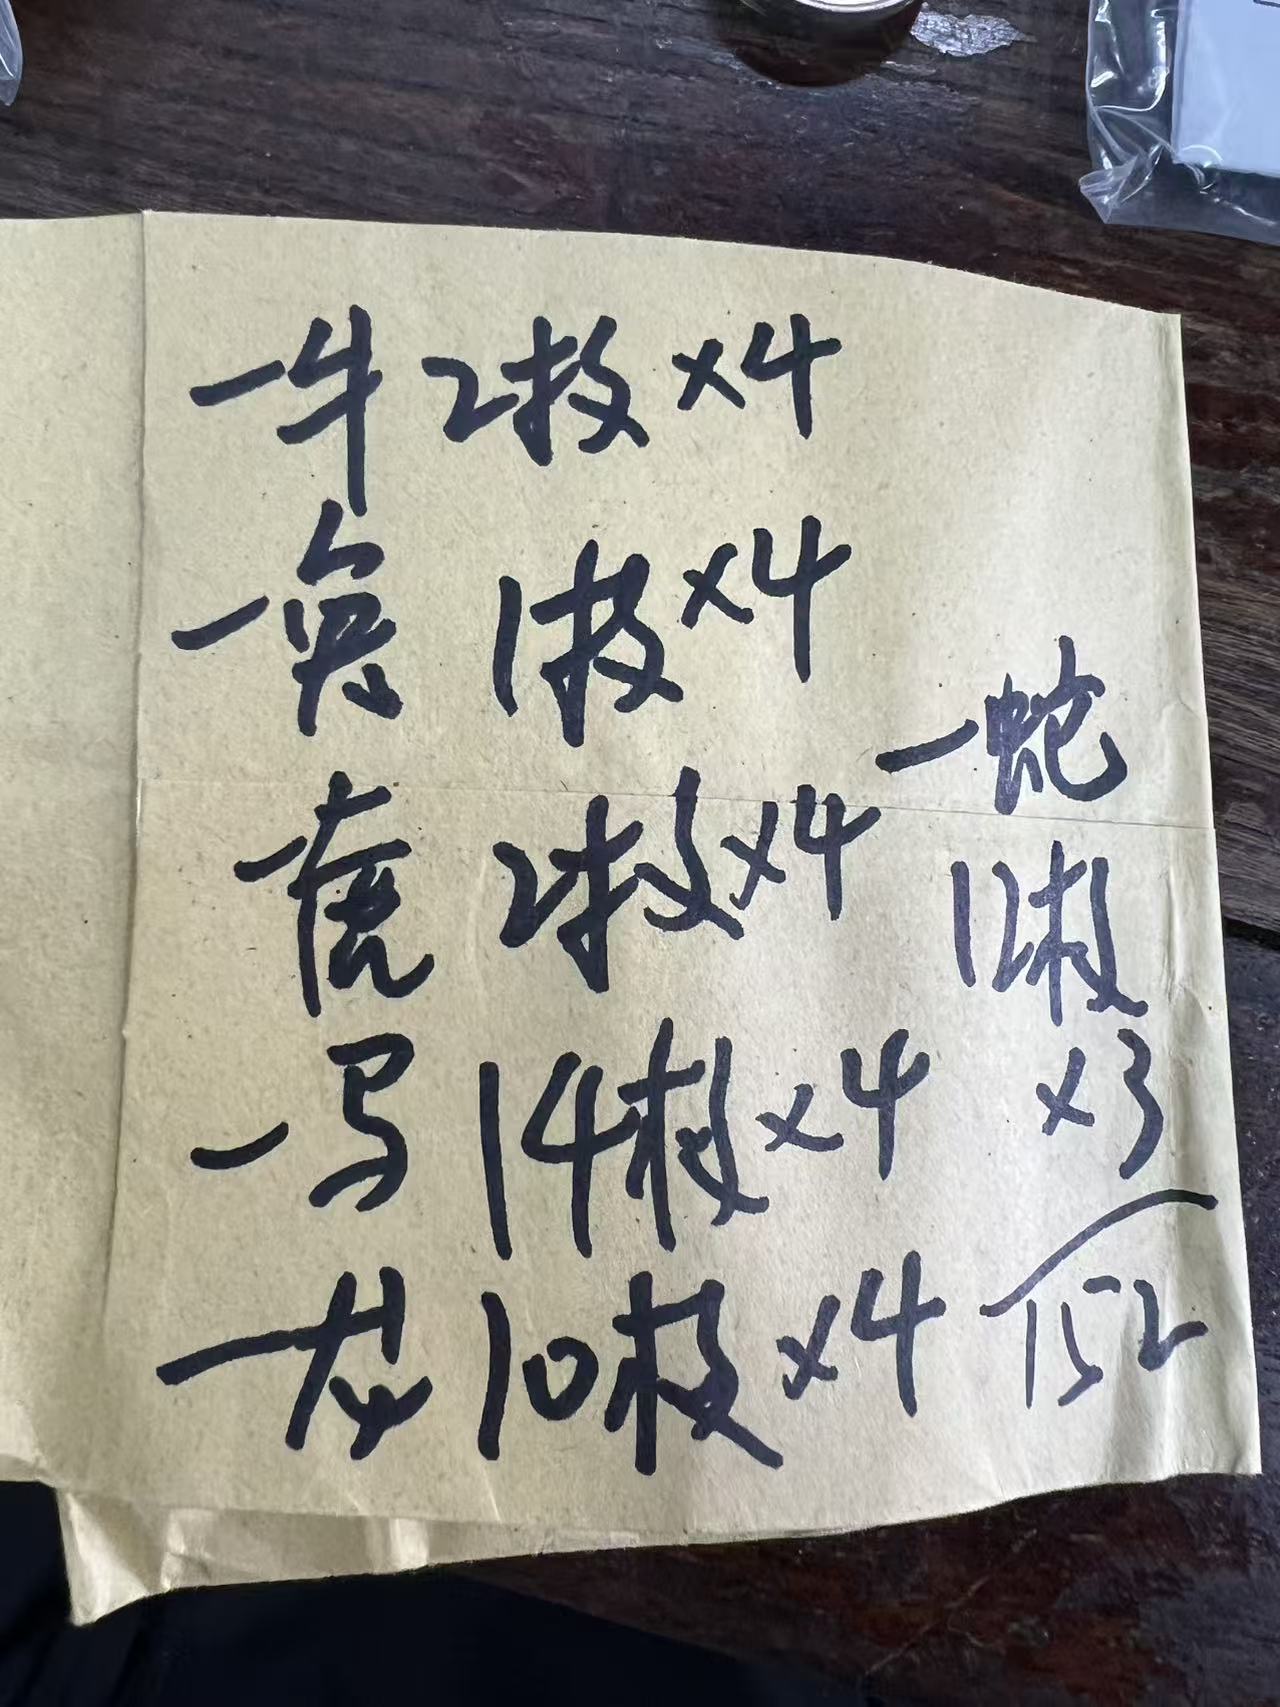 一牛 2枚 ×4
一兔 1枚 ×4
一虎 2枚 ×4
一马 14枚 ×4
一龙 10枚 ×4
一蛇
12枚
×3
152